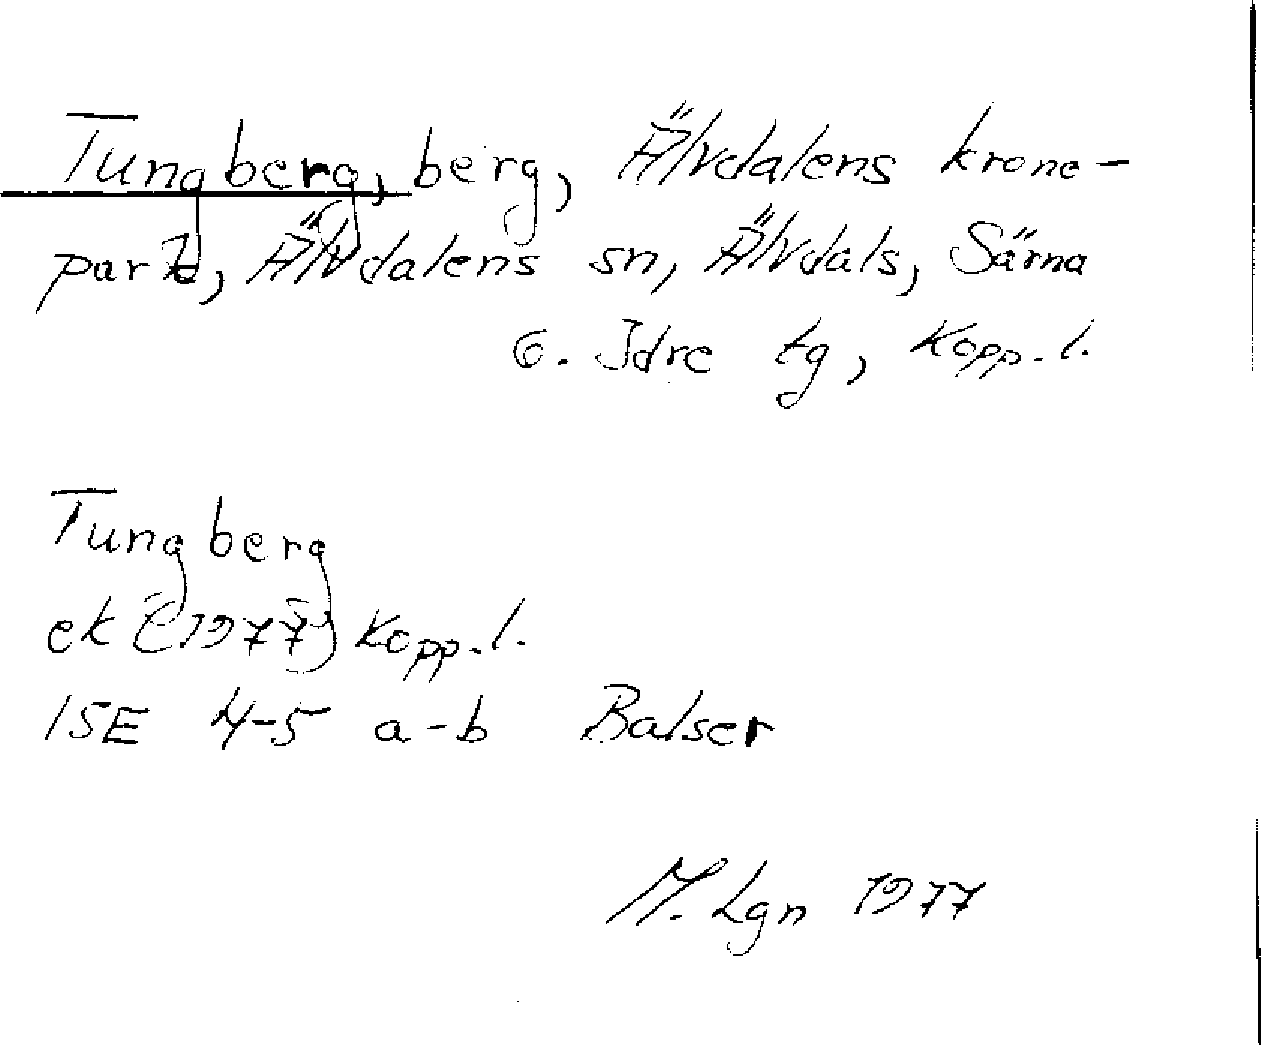 Tungberg, berg, Älvdalens krone-
park, Älvdalens sn, Älvdals, Särna
o. Idre tg, Kopp. l.
Tungberg
ek (1977) Kopp. l.
15E 4-5 a-b Balser
M. Lgn 1977